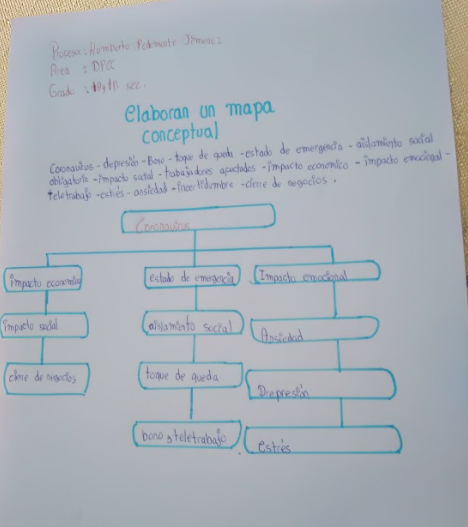 Profesor: Humberto Pedemonte Jimenez
Área : DPCC
Grado :
sec.
elaboran un mapa
conceptual
Coronavirus - depresión - Bono - toque de queda - estado de emergencia - aislamiento social
obligatorio - impacto social - trabajadores apartados - impacto economico - impacto emocional -
teletrabajo - estrés - ansiedad - incertidumbre - cierre de negocios .
Coronavirus
impacto economico
estado de emergencia
Impacto emocional
impacto social
aislamiento social
Ansiedad
cierre de negocios
toque de queda
Drepresión
bono y teletrabajo
estrés